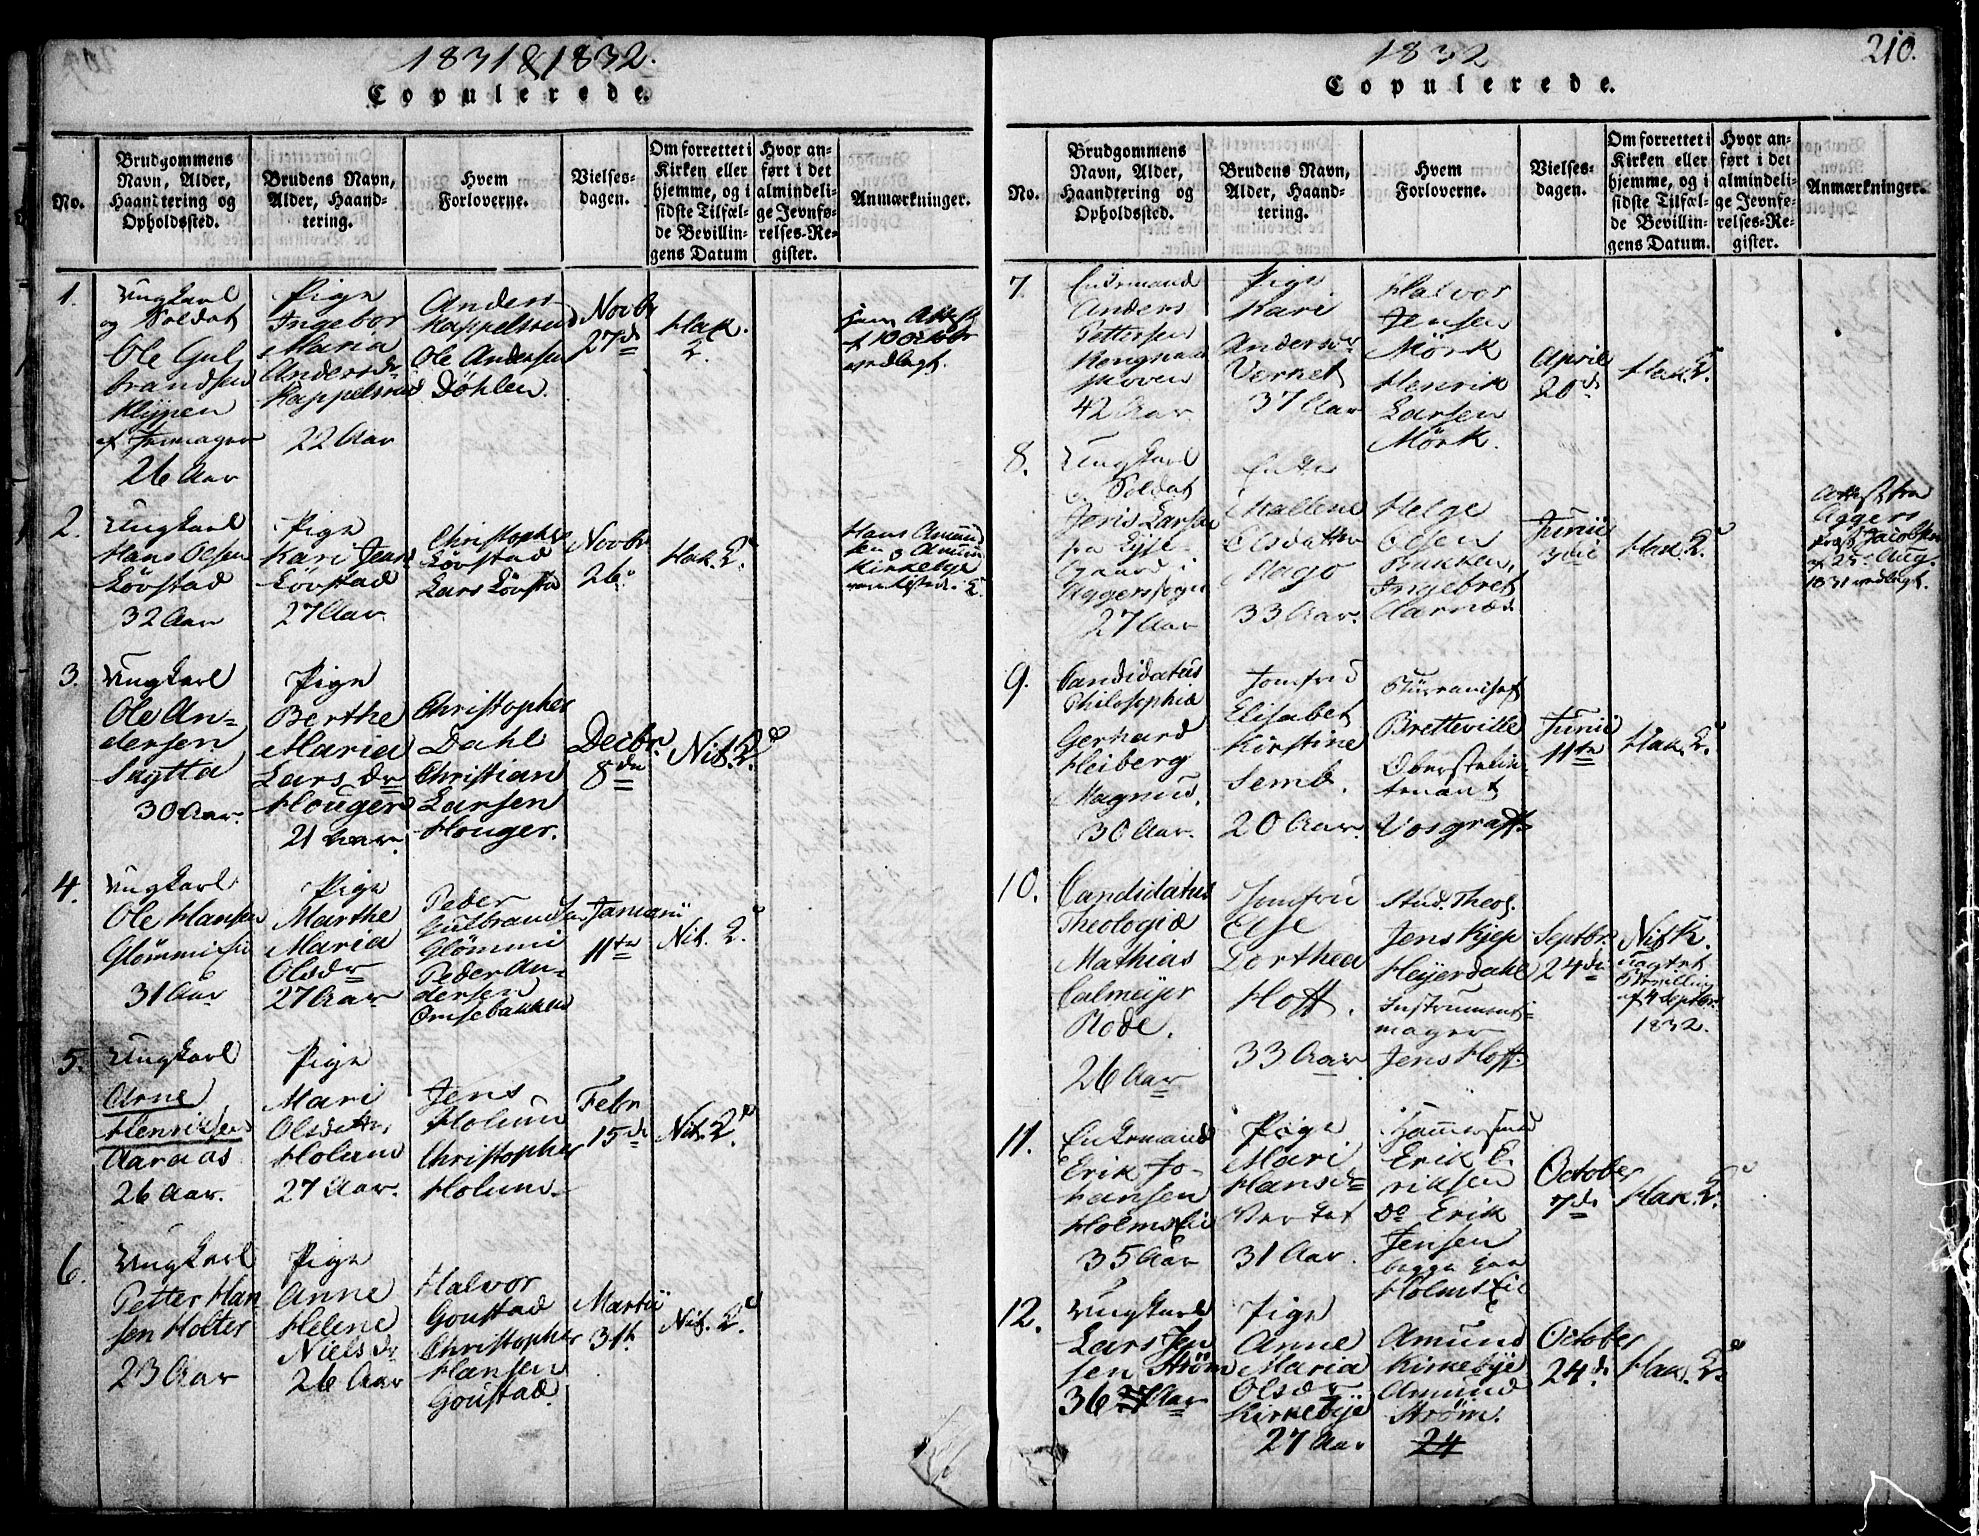 1831 & 1832.
Copulerede.
No.
Brudgommens
Navn, Alder,
Haandtering og
Opholdssted.
Brudens Navn,
Alder, Haand-
tering.
Hvem
Forloverne.
Vielses-
dagen.
Om forrettet i
Kirken eller
hjemme, og i
sidste Tilfæl-
de Bevillin-
gens Datum
Hvor an-
ført i det
almindeli-
ge Jevnfø-
relses-Re-
gister.
Anmærkninger.
1.
Ungkarl
og Soldat
Ole Gul-
brandsen
26 Aar
Pige
Ingebor
Maria
Andersdr
Kappelsrud
22 Aar
Anders
Kappelsrud
Ole Andersen
Døhlen.
Novbr
27de
Hak.
2.
vedlagt.
2.
Ungkarl
Hans Olsen
Løvstad
32 Aar
Pige
Kari Jens
Løvstad
27 Aar.
Christopher
Løvstad
Lars Løvstad
Novbr
26
Hak. 2.
Hans Amund
sen & Amun
Kirkebye
3.
Ungkarl
Ole An-
dersen
Skytta
30 Aar.
Pige
Berthe
Maria
Larsdr
Houger
21 Aar.
Christopher
Dahl
Christian
Larsen
Houger.
Decbr.
8de
Nit. 2.
4.
Ungkarl
Ole Hansen
31 Aar
Pige
Marthe
Maria
Olsdr
27 Aar
Peder
Gulbrandsen
Glømmi
Peder An-
dersen
Januarii
11te
Nit. 2.
5.
Ungkarl
Arne
Henriksen
Aaraas
26 Aar.
Pige
Mari
Olsdatter
Holum
27 Aar.
Jens
Holum
Christopher
Holum.
Febr
15de
Nit. 2.
6.
Ungkarl
Petter Han
sen Holter
23 Aar
Pige
Anne
Helene
Nielsdr
26 Aar
Halvor
Goustad
Christopher
Hansen
Goustad.
Martii
31t
Nit. 2.
1832
210.
Copulerede.
No.
Brudgommens
Navn, Alder,
Haandtering og
Opholdssted.
Brudens Navn,
Alder, Haand-
tering.
Hvem
Forloverne.
Vielses-
dagen.
Om forrettet i
Kirken eller
hjemme, og i
sidste Tilfæl-
de Bevillin-
gens Datum.
Hvor an-
ført i det
almindeli-
ge Jevnfø-
relses-Re-
gister.
Anmærkninger.
7.
Enkemand
Anders
Pettersen
42 Aar
Pige
Kari
Andersdr
Verket
37 Aar
Halvor
Jensen
Mörk
Henrik
Larsen
Mörk.
April
20de
Hak. 2.
8.
Ungkarl
og Soldat
Joris Larsen
fra Lyse-
gaard i
Aggerssogn
27 Aar
Enke
Mallene
Olsdatter
Hago
33 Aar.
Helge
Olsen
Bakken,
Ingebret
Aarnæs
Junii
3die
Hak. 2.
Attest fra
Aggers
Præst Jacobsen
af 25 Aug.
1831 vedlagt.
9.
Candidatus
Philosophiæ
Gerhard
Heiberg
Magnus.
30 Aar.
Jomfru
Elisabet
Kirstine
Semb.
20 Aar.
Bretteville
Oberstelieu-
tenant
Vosgraff
Junii
11te
Hak. 2.
10.
Candidatus
Theologiæ
Mathias
Calmeijer
Rode.
26 Aar
Jomfru
Else
Dorthea
Hoff.
33 Aar
Stud. Theol.
Jens Kjep
Heijerdahl
Instrument-
mager
Jens Hoff.
Septbr.
24de
Nit K.
Bevilling
af 4 Septbr
1832.
11.
Enkemand
Erik Jo-
hansen
35 Aar
Pige
Mari
Hansdr
Verket
31 Aar.
Hammersmed
Erik E-
riksen
Do Erik
Jensen
October
7de
Hak. 2.
12.
Ungkarl
Lars Jen
sen Strøm
36 27 Aar
Pige
Anne
Maria
Olsdr
Kirkebye
27 Aar
Amund
Kirkebye
Amund
Strøm.
24
October
24de
Hak. 2.